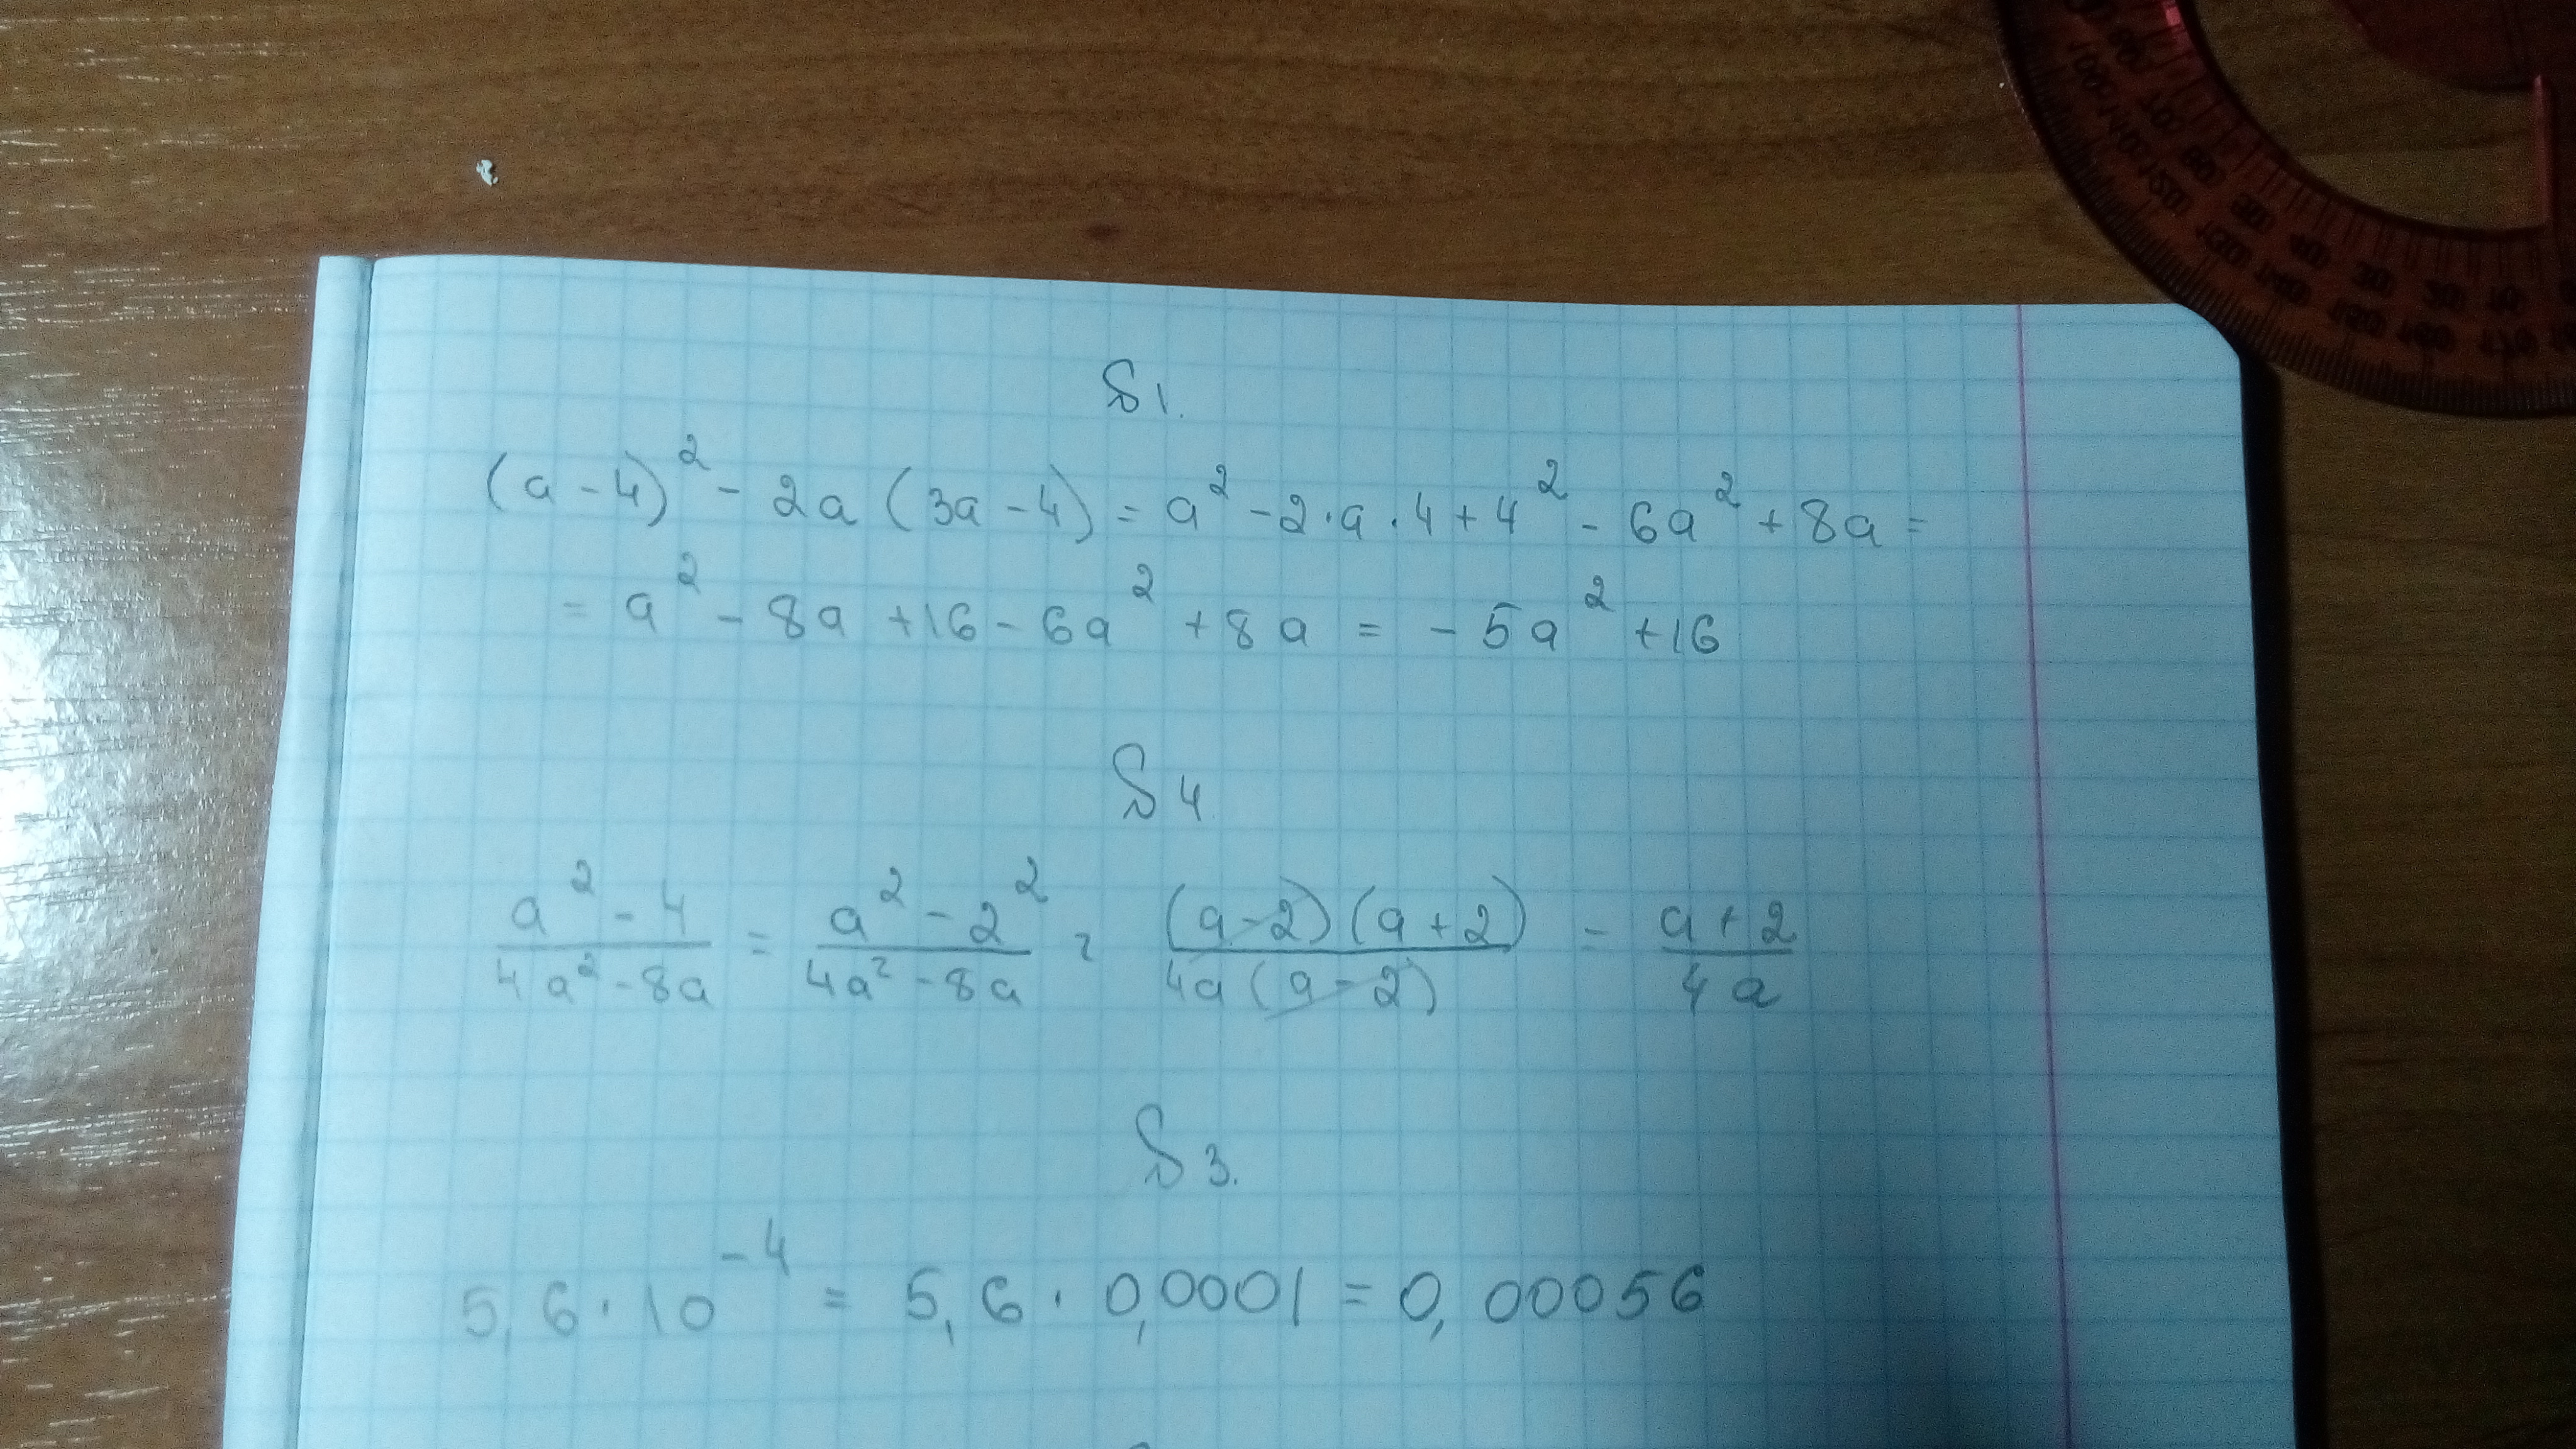 №1.
(a-4)² - 2a(3a-4) = a² - 2·a·4 + 4² - 6a² + 8a =
= a² - 8a + 16 - 6a² + 8a = -5a² + 16
№4
(a² - 4)/(4a² - 8a) = (a² - 2²)/(4a² - 8a) = ((a-2)(a+2))/(4a(a-2)) = (a+2)/(4a)
№3.
5,6·10⁻⁴ = 5,6·0,0001 = 0,00056